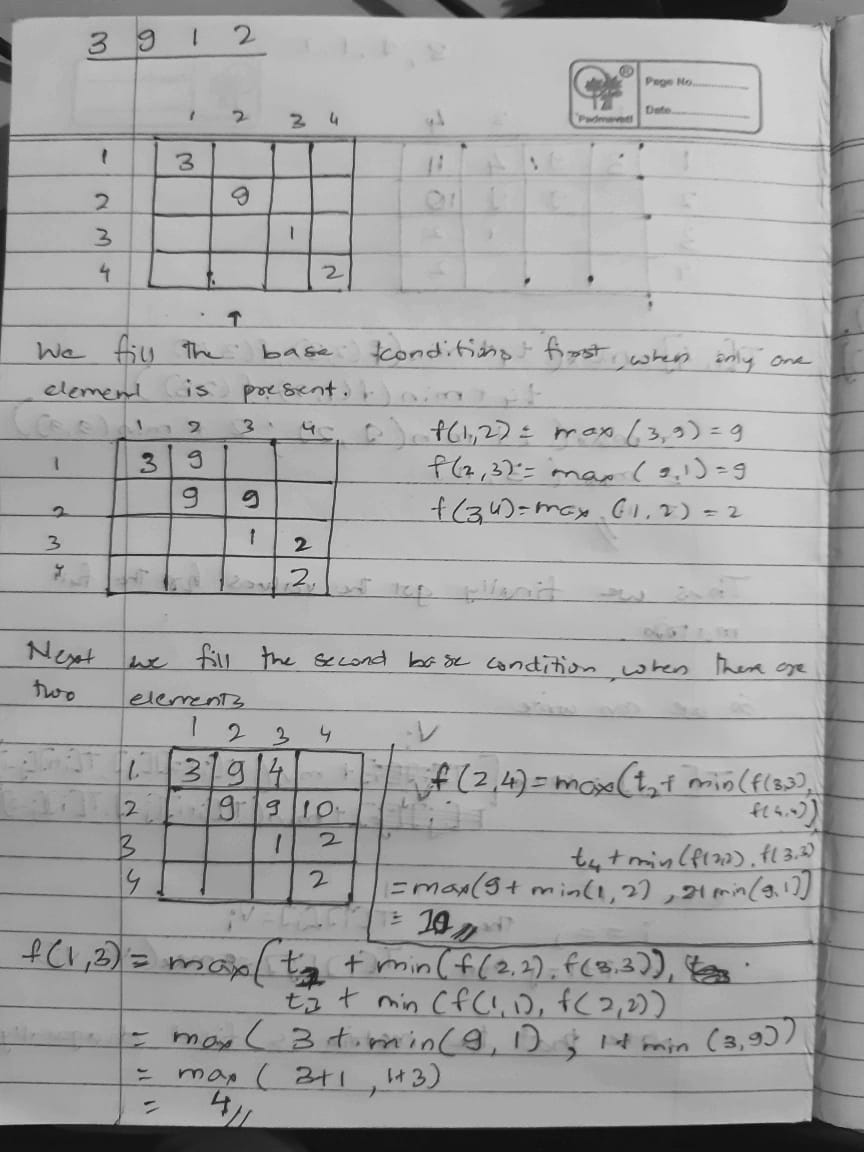 3 9 1 2
Page No.
Date
Padmavati
1 2 3 4
1 3
2 9
3 1
4 2
We fill the base conditions first, when only one
element is present.
1 2 3 4
1 3 9
2 9 9
3 1 2
4 2
f(1,2) = max (3,9) = 9
f(2,3) = max (9,1) = 9
f(3,4) = max (1,2) = 2
Next we fill the second base condition, when there are
two elements
1 2 3 4
1. 3 9 4
2 9 9 10
3 1 2
4 2
f(2,4) = max(t2 + min(f(3,3),
f(4,4))
t4 + min(f(2,2), f(3,3)
= max(9 + min(1,2), 2+ min(9,1))
= 10 //
f(1,3) = max( t1 + min(f(2,2), f(3,3)),
t3 + min (f(1,1), f(2,2))
= max( 3 + min(9, 1), 1+ min (3,9))
= max ( 3+1 , 1+3)
= 4 //